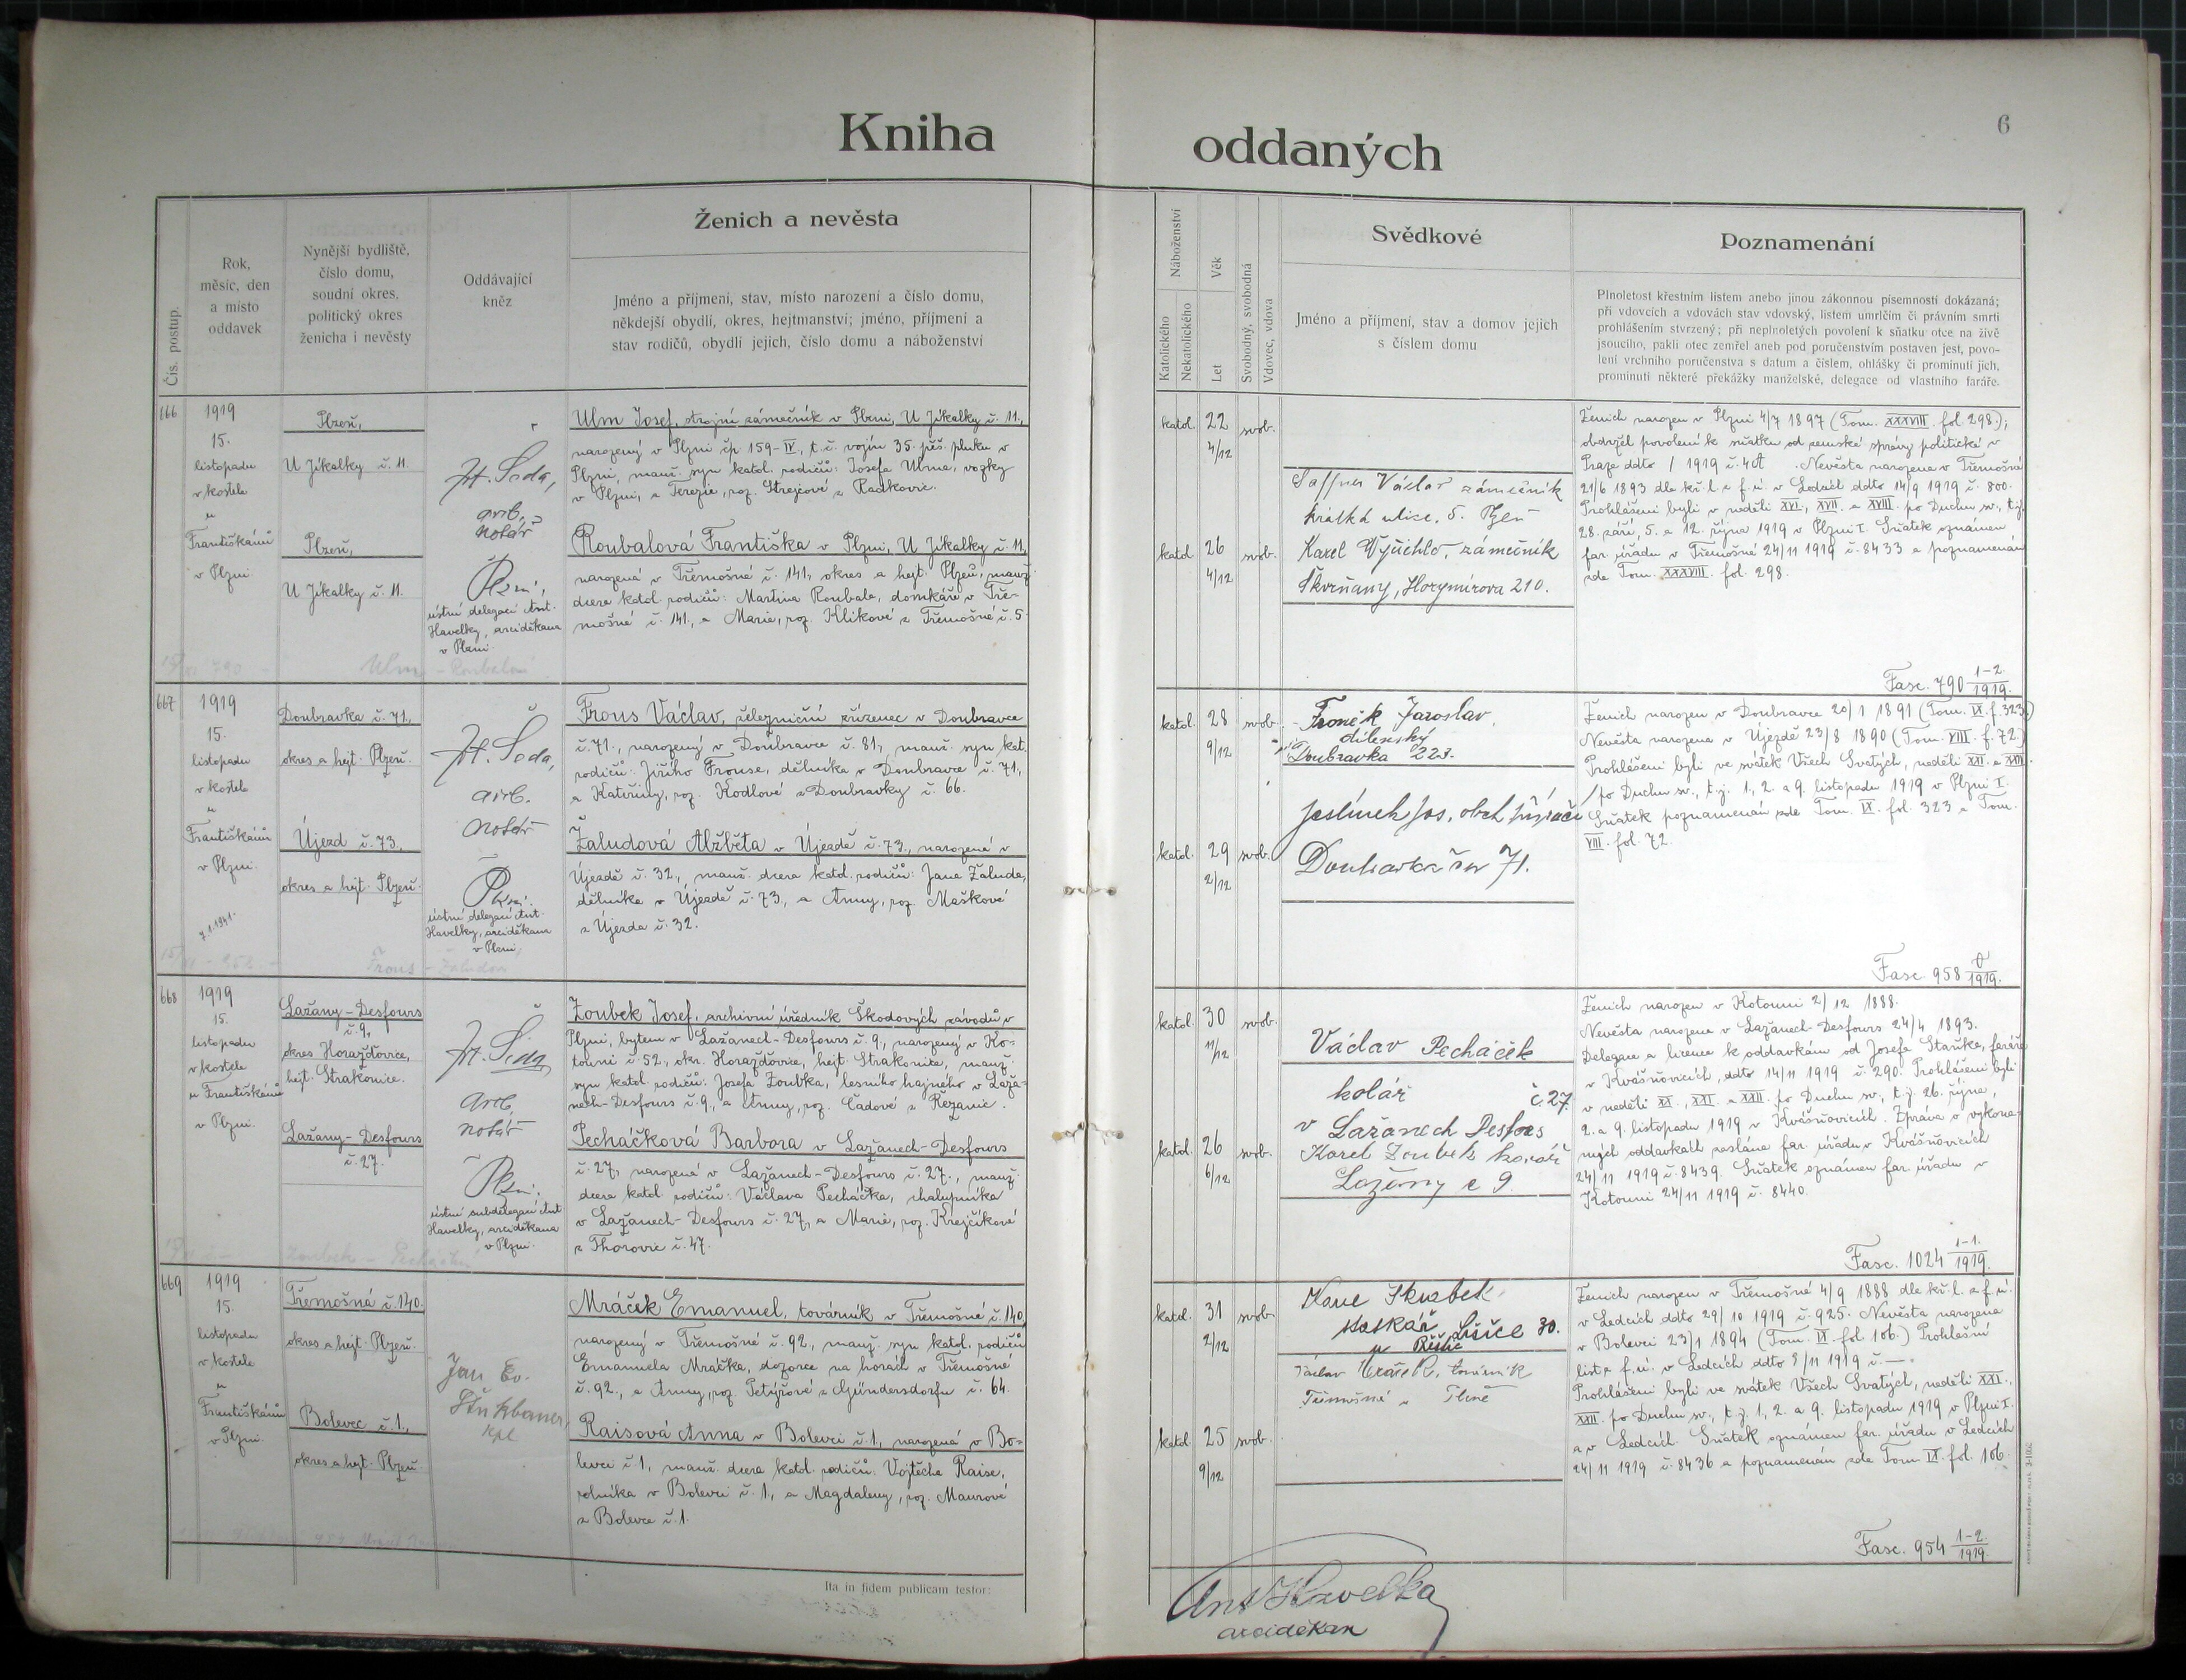 Kniha
oddaných
6
Čís. postup.
Rok,
měsíc, den
a místo
oddavek
Nynější bydliště,
číslo domu,
soudní okres,
politický okres
ženicha i nevěsty
Oddávající
kněz
Ženich a nevěsta
Jméno a příjmení, stav, místo narození a číslo domu,
někdejší obydlí, okres, hejtmanství; jméno, příjmení a
stav rodičů, obydlí jejich, číslo domu a náboženství
Náboženství
Katolického
Nekatolického
Věk
Let
Svobodný, svobodná
Vdovec, vdova
Svědkové
Jméno a příjmení, stav a domov jejich
s číslem domu
Poznamenání
Plnoletost křestním listem anebo jinou zákonnou písemností dokázaná;
při vdovcích a vdovách stav vdovský, listem úmrlčím či právním smrti
prohlášením stvrzený; při neplnoletých povolení k sňatku otce na živě
jsoucího, pakli otec zemřel aneb pod poručenstvím postaven jest, povo-
lení vrchního poručenstva s datum a číslem, ohlášky či prominutí jich,
prominutí některé překážky manželské, delegace od vlastního faráře.
666
1919
15.
listopadu
v kostele
u
Františkánů
v Plzni
Plzeň,
U Jíkalky č. 11.
Plzeň,
U Jíkalky č. 11.
Fr. Šeda,
arcib.
notář
Plzni,
ústní delegací Ant.
Havelky, arciděkana
v Plzni
Ulm Josef, strojní zámečník v Plzni, U Jíkalky č. 11.,
narozený v Plzni čp 159-IV., t.č. vojín 35. pěš. pluku v
Plzni, manž. syn katol. rodičů: Josefa Ulma, vozky
v Plzni, a Terezie, roz. Strejcové z Radkovic.
Roubalová Františka v Plzni, U Jíkalky č. 11,
narozená v Třemošné č. 141, okres a hejt. Plzeň, manž.
dcera katol. rodičů: Martina Roubala, domkáře v Tře-
mošné č. 141., a Marie, roz. Klikové z Třemošné č. 5.
Ulm - Roubalová
katol. 22 4/12 svob.
katol. 26 4/12 svob.
Václav zámečník
Krátká ulice, 5. Plzeň
Karel Vyčichlo, zámečník
Škvrňany, Horymírova 210.
Ženich narozen v Plzni 4/7 1897 (Tom. XXXVIII. fol. 298.);
obdržel povolení k sňatku od zemské správy politické v
Praze ddto / 1919 č. 4 A . Nevěsta narozena v Třemošné
21/6 1893 dle kř. l. z f. ú. v Ledcích ddto 14/9 1919 č. 800.
Prohlášeni byli v neděli XVI., XVII. a XVIII. po Duchu sv., t.j.
28. září, 5. a 12. října 1919 v Plzni I. Sňatek oznámen
far. úřadu v Třemošné 24/11 1919 č. 8433 a poznamenán
zde Tom. XXXVIII. fol. 298.
Fasc. 790 1-2/1919.
667
1919
15.
listopadu
v kostele
u
Františkánů
v Plzni.
7.1.1941.
Doubravka č. 71.,
okres a hejt. Plzeň.
Újezd č. 73.,
okres a hejt. Plzeň.
Fr. Šeda,
arcib.
notář
Plzni.
ústní delegací Ant.
Havelky, arciděkana
v Plzni,
Frous Václav, železniční zřízenec v Doubravce
č. 71., narozený v Doubravce č. 81., manž. syn kat.
rodičů: Jiřího Frouse, dělníka v Doubravce č. 71.,
a Kateřiny, roz. Kodlové z Doubravky č. 66.
Žaludová Alžběta v Újezdě č. 73., narozená v
Újezdě č. 32., manž. dcera katol. rodičů: Jana Žaluda,
dělníka v Újezdě č. 73, a Anny, roz. Maškové
z Újezda č. 32.
Frous - Žaludová
katol. 28 9/12 svob.
katol. 29 2/12 svob.
Froněk Jaroslav,
dílenský
Doubravka 223.
Jos.
Doubravka čís 71.
Ženich narozen v Doubravce 20/1 1891 (Tom. IX. f. 323.)
Nevěsta narozena v Újezdě 23/8 1890 (Tom. VIII. f. 72.)
Prohlášeni byli ve svátek Všech Svatých, neděli XXI. a XXII.
po Duchu sv., t.j. 1., 2. a 9. listopadu 1919 v Plzni I.
Sňatek poznamenán zde Tom. IX. fol. 323 a Tom.
VIII. fol. 72.
Fasc. 958 /1919.
668
1919
15.
listopadu
v kostele
u Františkánů
v Plzni.
Lažany-Desfours
č. 9,
okres Horažďovice,
hejt. Strakonice.
Lažany-Desfours
č. 27.
Fr. Šeda,
arcib.
notář
Plzni.
ústní subdelegací Ant.
Havelky, arciděkana
v Plzni.
Zoubek Josef, archivní úředník Škodových závodů v
Plzni, bytem v Lažanech-Desfours č. 9., narozený v Ko-
touni č. 52., okr. Horažďovice, hejt. Strakonice, manž.
syn katol. rodičů: Josefa Zoubka, lesního hajného v Laža-
nech-Desfours č. 9., a Anny, roz. Čadové z Řezanic.
Pecháčková Barbora v Lažanech-Desfours
č. 27, narozená v Lažanech-Desfours č. 27., manž.
dcera katol. rodičů: Václava Pecháčka, chalupníka
v Lažanech-Desfours č. 27, a Marie, roz. Krejčíkové
z Thořovic č. 47.
Zoubek - Pecháčk
katol. 30 11/12 svob.
katol. 26 6/12 svob.
Václav Pecháček
kolář č. 27.
v Lažanech Desfors
Karel Zoubek kovář
Lažany č 9.
Ženich narozen v Kotouni 2/12 1888.
Nevěsta narozena v Lažanech-Desfours 24/4 1893.
Delegace a licence k oddavkám od Josefa Staňka, faráře
v Kvášňovicích, ddto 14/11 1919 č. 290. Prohlášeni byli
v neděli XX., XXI. a XXII. po Duchu sv., t.j. 26. října,
2. a 9. listopadu 1919 v Kvášňovicích. Zpráva o vykona-
ných oddavkách zaslána far. úřadu v Kvášňovicích
24/11 1919 č. 8439. Sňatek oznámen far. úřadu v
Kotouni 24/11 1919 č. 8440.
Fasc. 1024 1-1./1919.
669
1919
15.
listopadu
v kostele
u
Františkánů
v Plzni.
Třemošná č. 140.
okres a hejt. Plzeň.
Bolevec č. 1.,
okres a hejt. Plzeň.
Jan Ev.
kpl
Mráček Emanuel, továrník v Třemošné č. 140,
narozený v Třemošné č. 92., manž. syn katol. rodičů
Emanuela Mráčka, dozorce na horách v Třemošné
č. 92., a Anny, roz. Petýřové z Gündersdorfu č. 64.
Raisová Anna v Bolevci č. 1., narozená v Bo-
levci č. 1, manž. dcera katol. rodičů: Vojtěcha Raise,
rolníka v Bolevci č. 1., a Magdaleny, roz. Maurové
z Bolevce č. 1.
katol. 31 2/12 svob.
katol. 25 9/12 svob.
Škrabek
Lišice 30.
Václav Mráček, továrník
Třemošná u Plzně
Ženich narozen v Třemošné 4/9 1888 dle kř. l. z f. ú.
v Ledcích ddto 29/10 1919 č. 925. Nevěsta narozena
v Bolevci 23/1 1894 (Tom. IX. fol. 106.) Prohlašní
list z f. ú. v Ledcích ddto 9/11 1919 č. —.
Prohlášeni byli ve svátek Všech Svatých, neděli XXI.,
XXII. po Duchu sv., t.j. 1., 2. a 9. listopadu 1919 v Plzni I.
a v Ledcích. Sňatek oznámen far. úřadu v Ledcích
24/11 1919 č. 8436 a poznamenán zde Tom. IX. fol. 106.
Fasc. 954 1-2/1919.
Ita in fidem publicam testor:
Ant Havelka
arciděkan